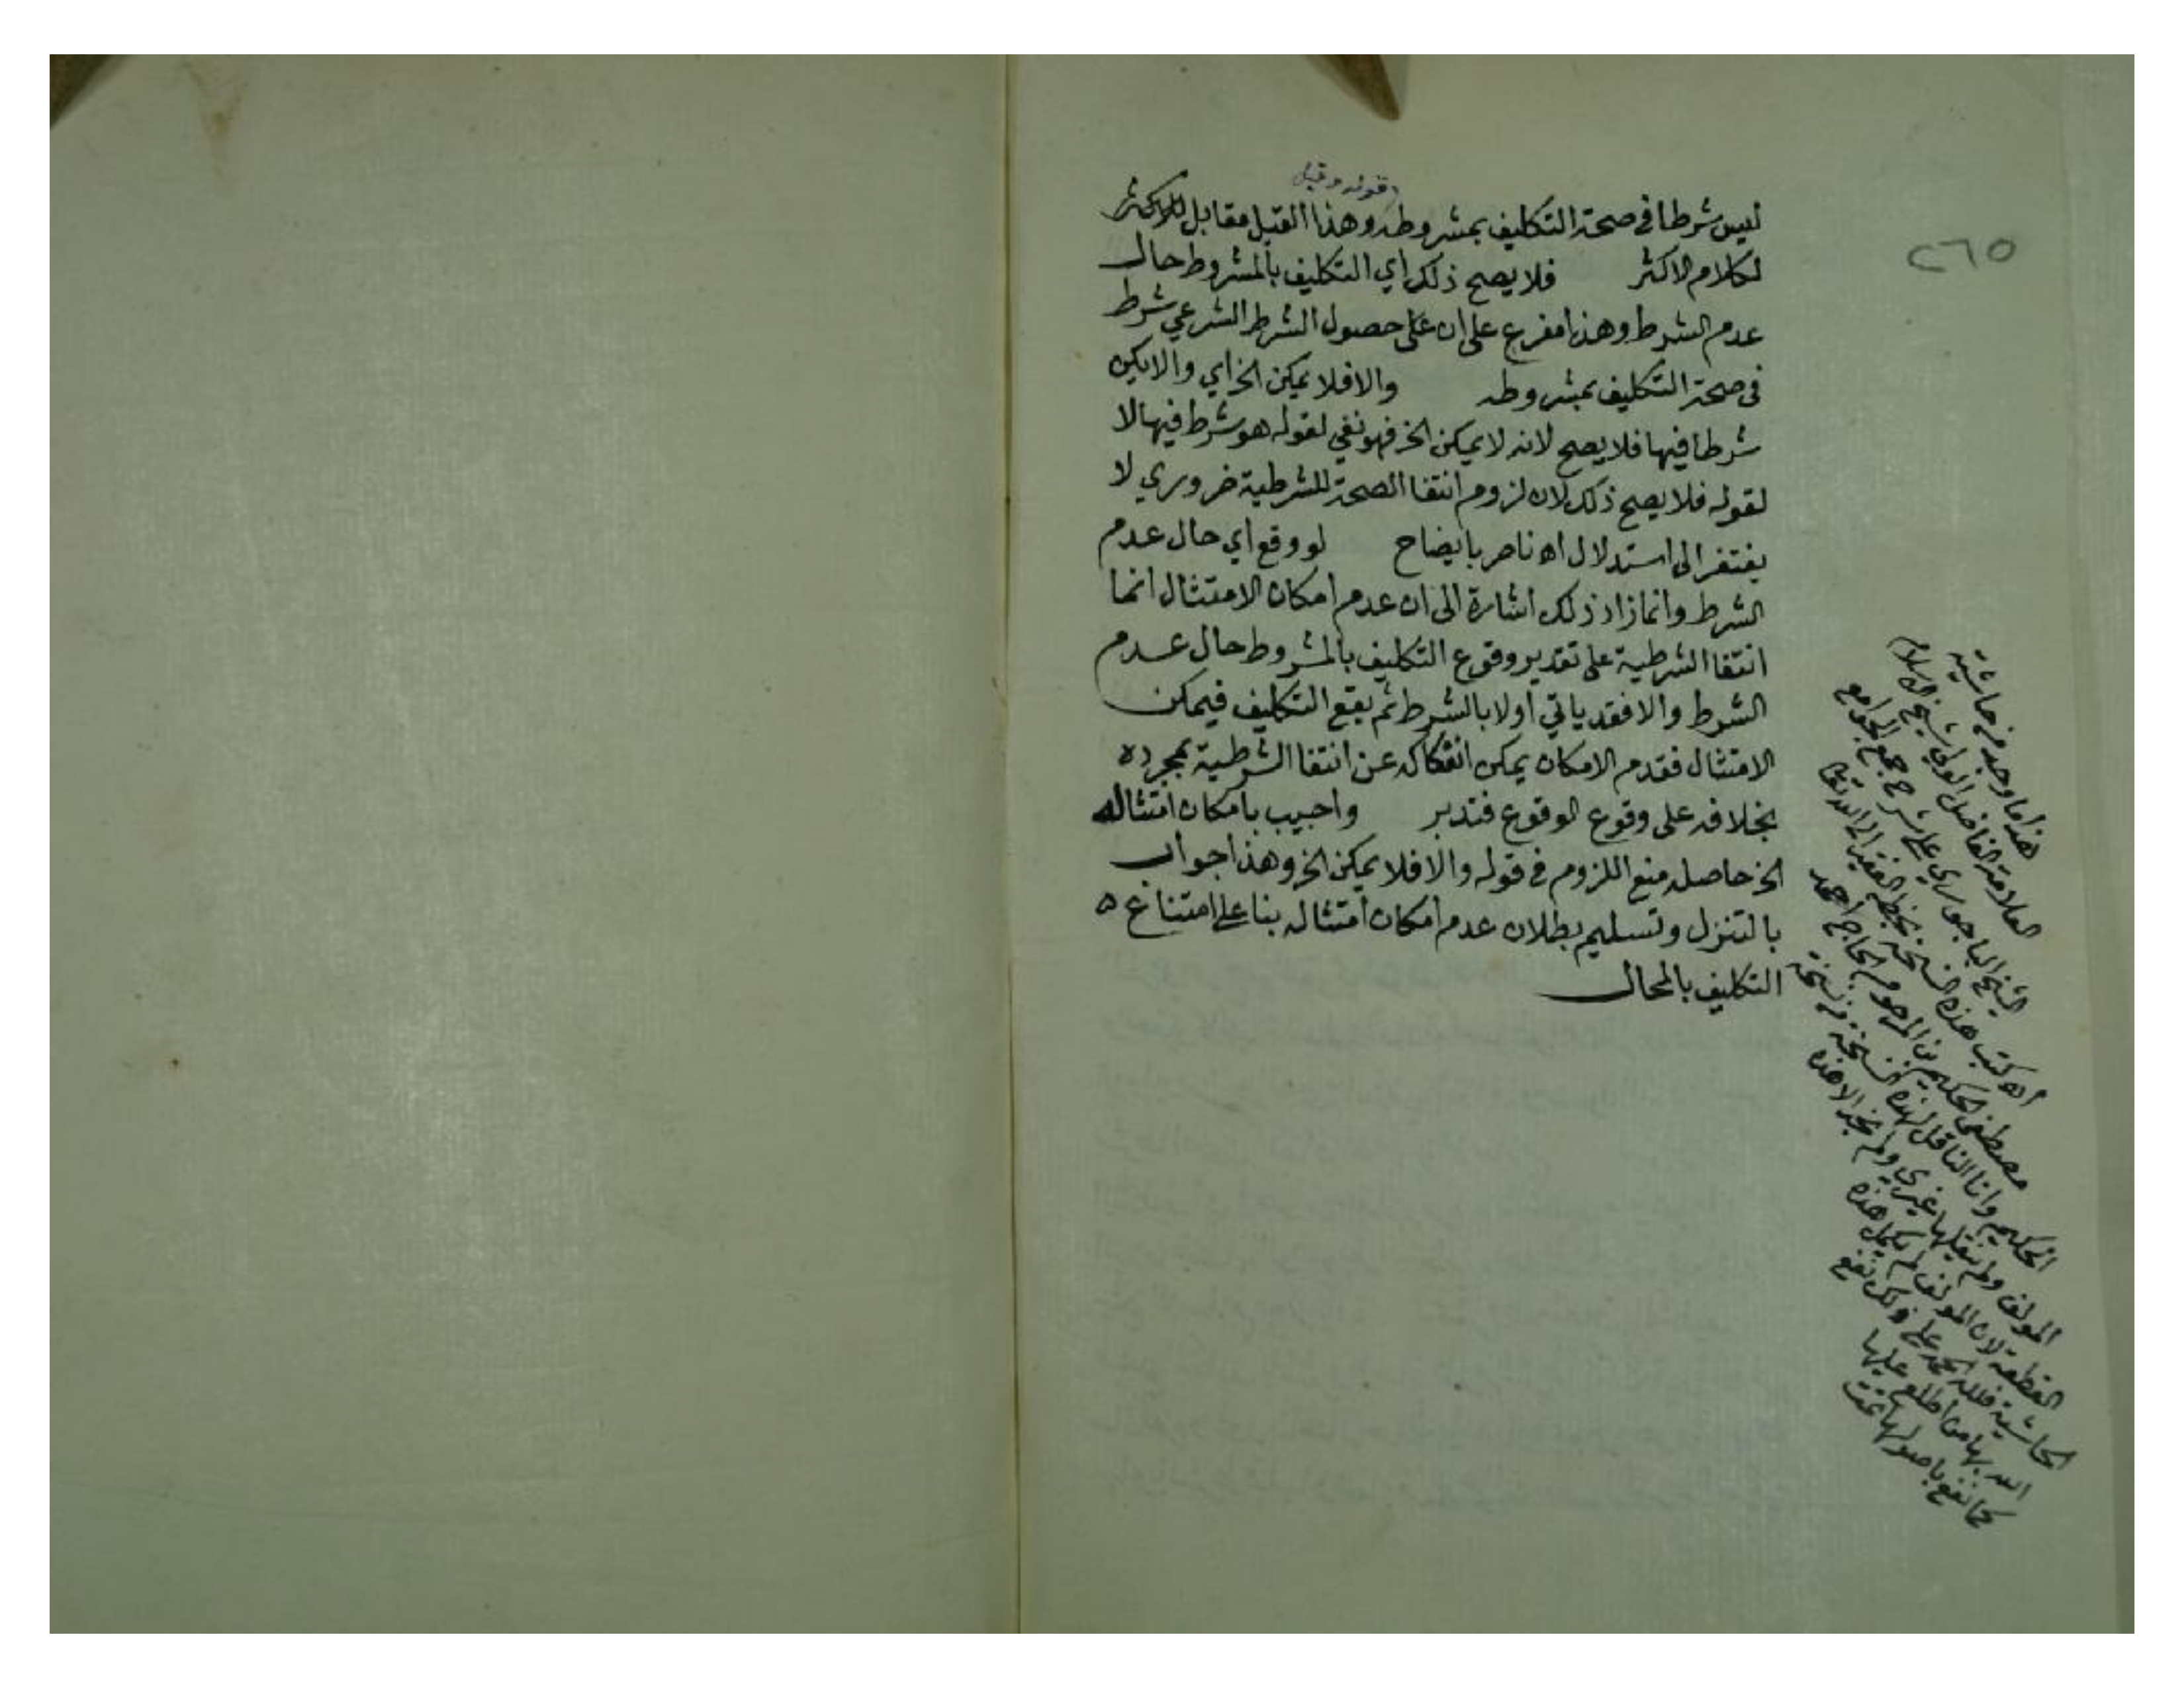 ٢٦٥
قوله وقيل
ليس شرطا في صحة التكليف بمشروطه وهذا القيل مقابل للاكثر
لكلام الاكثر فلا يصح ذلك اي التكليف بالمشروط حال
عدم الشرط وهذا مفرع على ان على حصول الشرط الشرعي شرط
في صحة التكليف بمشروطه والا فلا يمكن الخ اي والا يكن
شرطا فيها فلا يصح لانه لا يمكن الخ فهو نفي لقوله هو شرط فيها لا
لقوله فلا يصح ذلك لان لزوم انتفا الصحة للشرطية ضروري لا
يفتقر الى استدلال اه ناصر بايضاح لو وقع اي حال عدم
الشرط وانما زاد ذلك اشارة الى ان عدم امكان الامتثال انما
انتفا الشرطية على تقدير وقوع التكليف بالمشروط حال عدم
الشرط والا فقد ياتي اولا بالشرط ثم يقع التكليف فيمكن
الامتثال فقدم الامكان يمكن انفكاكه عن انتفا الشرطية بمجرده
بخلافه على وقوع الوقوع فتدبر واجيب بامكان امتثاله
الخ حاصله منع اللزوم في قوله والا فلا يمكن الخ وهذا جواب
بالتنزل وتسليم بطلان عدم امكان امتثاله بنا على امتناع ه
التكليف بالمحال
هذا ما وجد من حاشية
العلامة الفاضل الولي شيخ الاسلام
الشيخ الباجوري على شرح جمع الجوامع
اه كتب هذه النسخة بخطه الفقير الى الله تعالى
مصطفى الحكيم بن المرحوم الحاج احمد
الحكيم وانا الناقل لهذه النسخة من نسخة
المولف ولم ينقلها غيري ولم يجد الا هذه
القطعة لان المولف لم يكمل هذه
الحاشية فلله الحمد على ذلك نفع
الله بها من اطلع عليها
كما نفع باصولها تمت